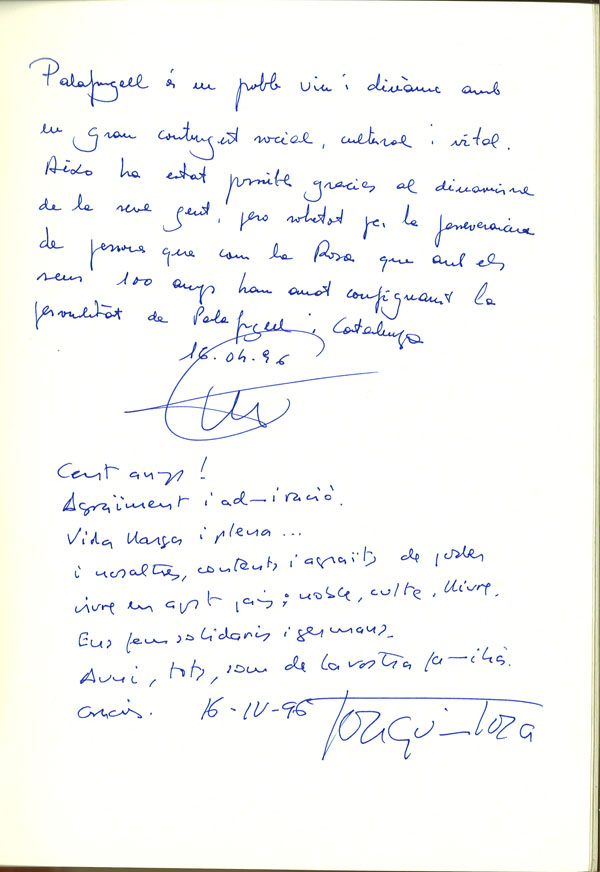 Palafrugell és un poble viu i dinàmic amb
un gran contingut social, cultural i vital.
Això ha estat possible gracies al dinamisme
de la seva gent, pero sobretot per la perseverancia
de persones que com la Rosa que amb els
seus 100 anys han anat configurant la
personalitat de Palafrugell i Catalunya
16.04.96
Cent anys!
Agraïment i admiració.
Vida llarga i plena...
i nosaltres, contents i agraïts de poder
viure en aquest país; noble, culte, lliure.
Ens fem solidaris i germans.
Avui, tots, som de la vostra família.
Gràcies. 16-IV-96